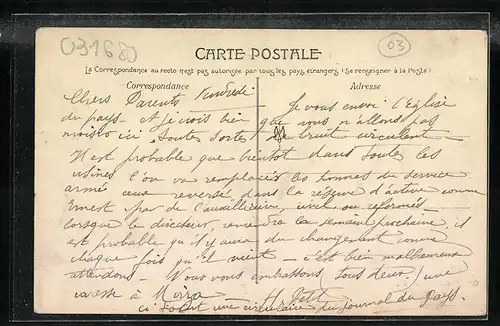 031680
03
CARTE POSTALE
La Correspondance au recto n'est pas autorisée par tous les pays étrangers (Se renseigner à la Poste)
Correspondance
Adresse
Chers Parents Vendredi Je vous envoi l'Eglise
du pays et je crois bien que nous n'allons pas
moisir ici toutes sortes de bruit circulent
Il est probable que bientot dans toutes les
usines l'on va remplacés les hommes du service
armé ceux reversé dans la réserve d'active comme
Ernest par de l'auxilliaire, civil ou reformés
lorsque le directeur, viendra la semaine prochaine il
est probable qu'il y aura du changement comme
chaque fois qu'il vient - c'est bien malheureux
attendons - Nous vous embrassons tous deux, une
caresse à Mirza H. Petit
ci joint une circulaire du Journal du Pays.